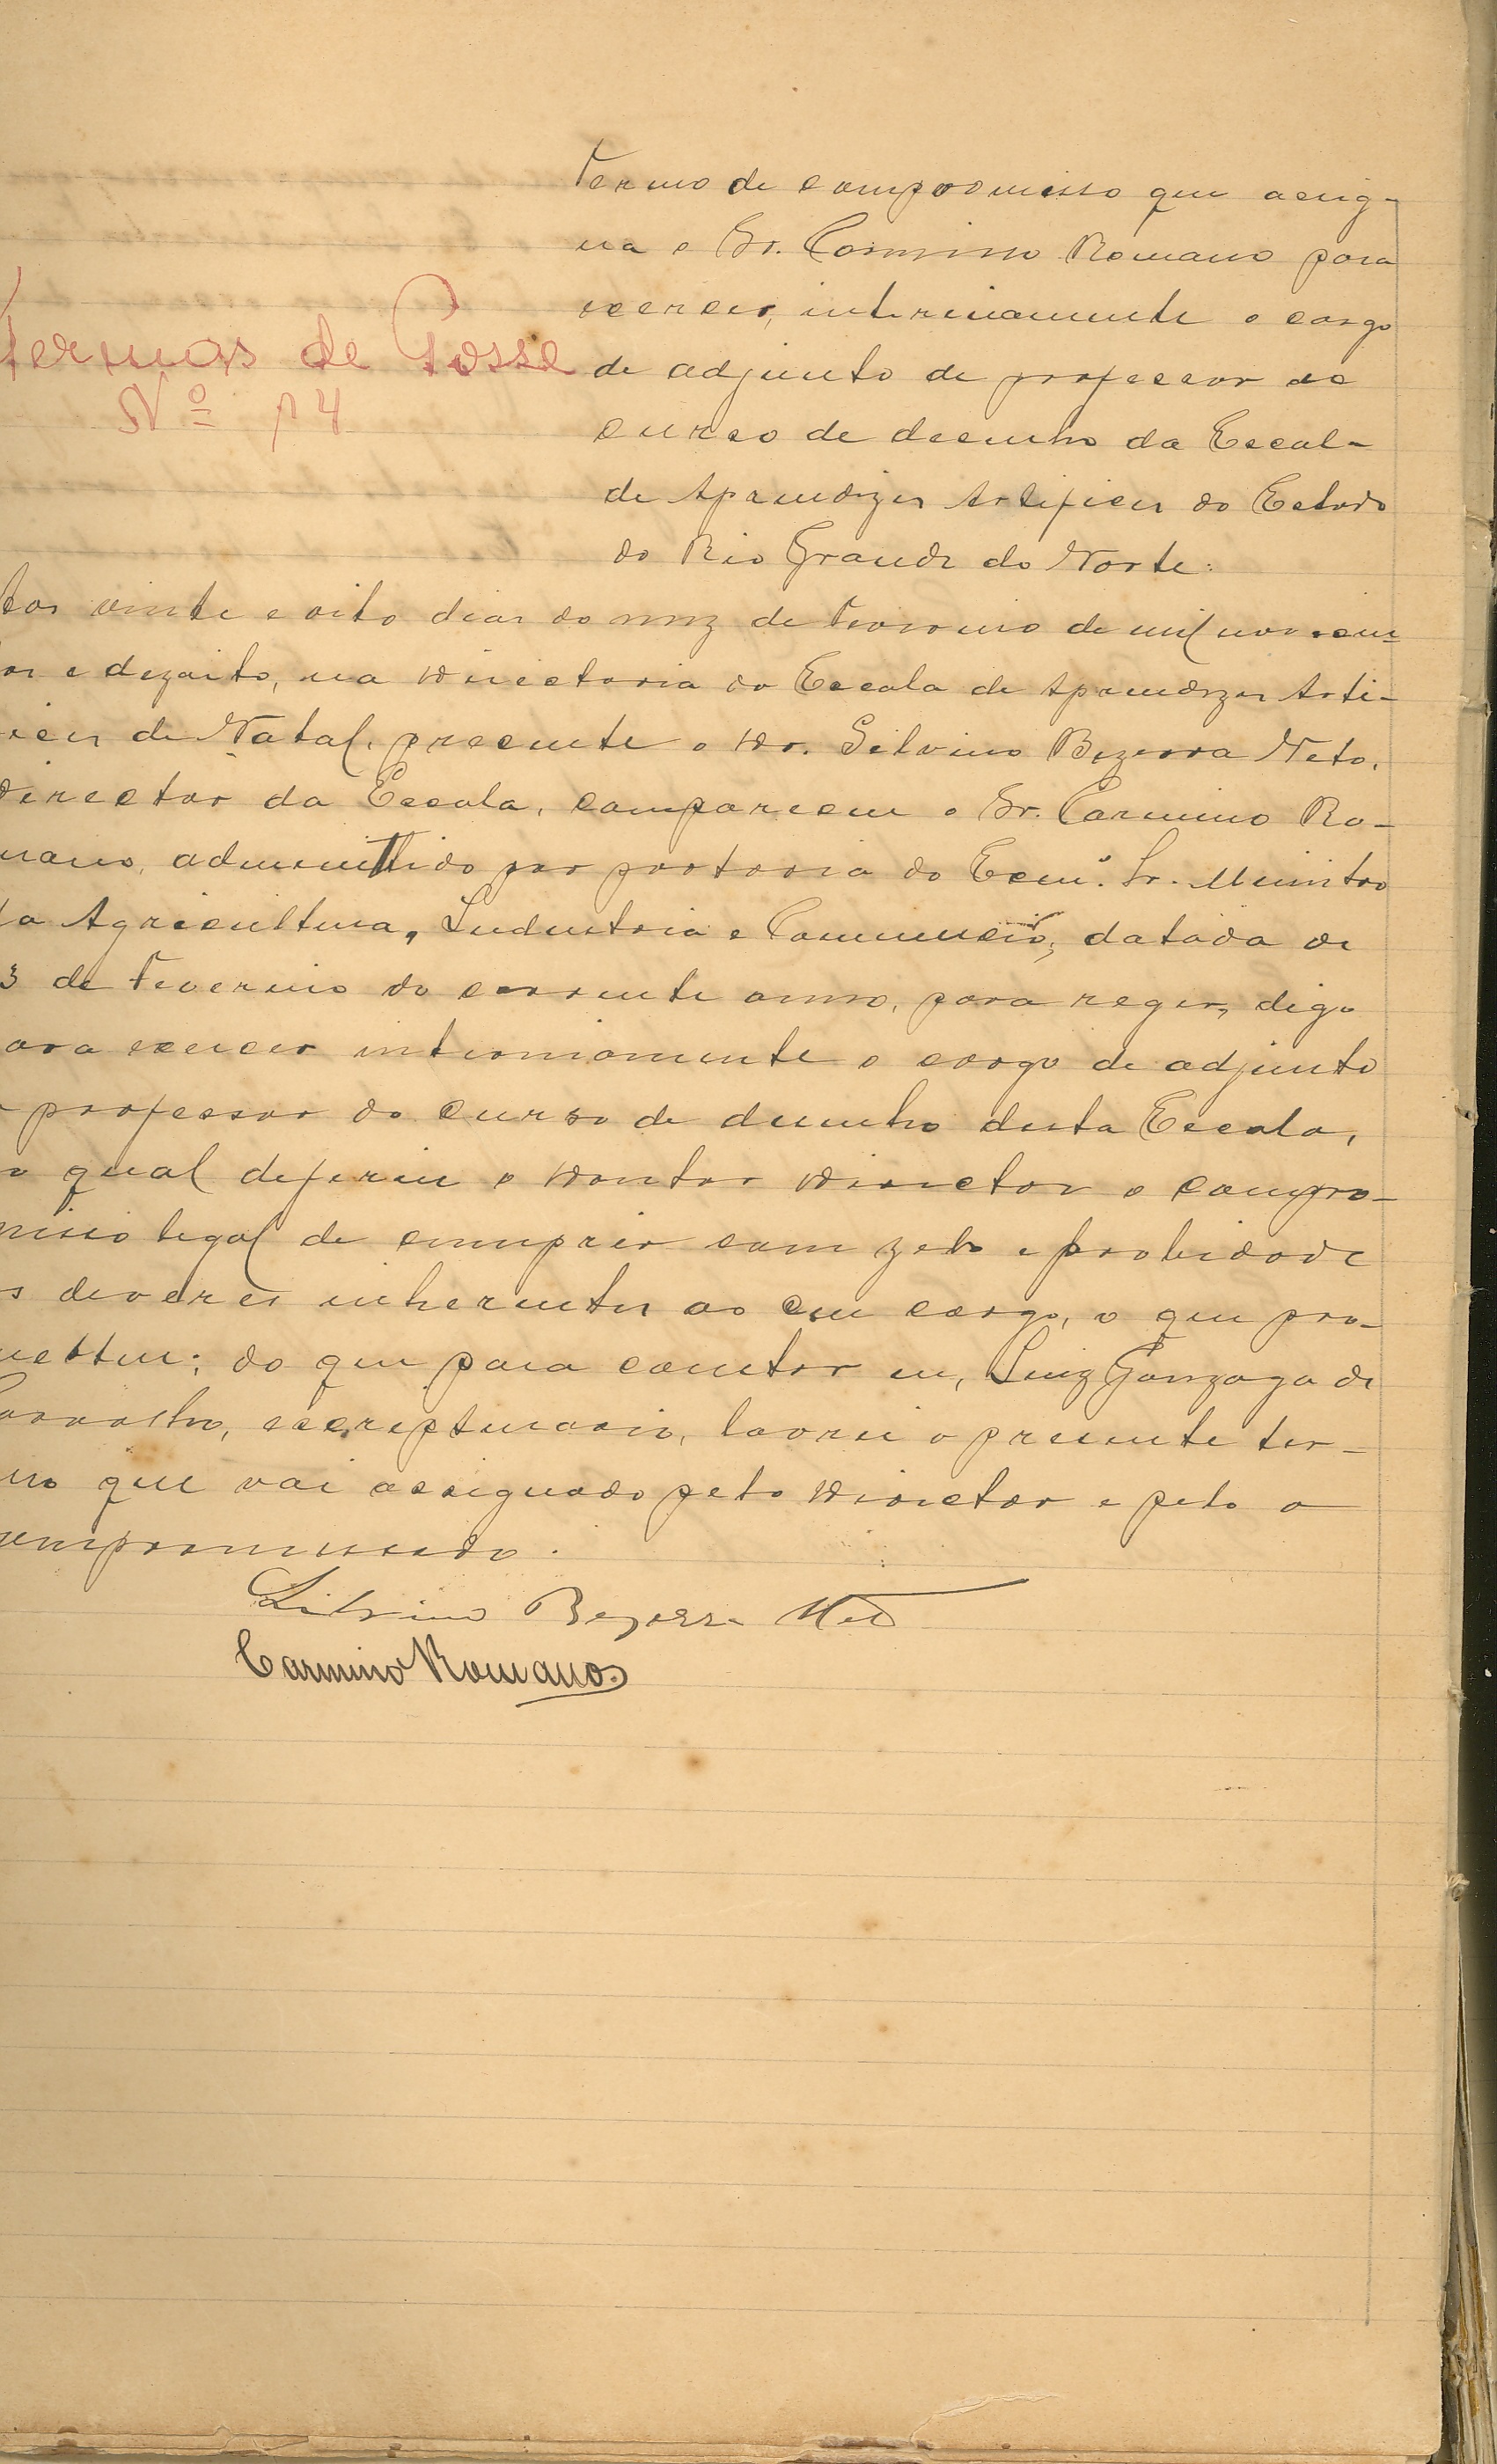 Termo de compromisso que assig-
na o Sr. Carmino Romano para
exercer, interinamente o cargo
de adjunto de professor do
curso de desenho da Escola
de Aprendizes Artifices do Estado
do Rio Grande do Norte.
Termos de Posse
Nº 14
Aos vinte e oito dias do mez de Fevereiro de mil novecen-
tos e dezoito, na Directoria da Escola de Aprendizes Arti-
fices de Natal, presente o Dr. Silvino Bezerra Neto,
Director da Escola, compareceu o Sr. Carmino Ro-
mano, admittido por portaria do Exmº. Sr. Ministro
da Agricultura, Industria e Commercio, datada de
3 de Fevereiro do corrente anno, para reger, digo
para exercer interinamente o cargo de adjunto
professor do curso de desenho desta Escola,
ao qual deferiu o Doutor Director o compro-
misso legal de cumprir com zelo e probidade
os deveres inherentes ao seu cargo, o que pro-
metteu; do que para constar eu, Luiz Gonzaga de
Carvalho, escripturario, lavrei o presente ter-
mo que vai assignado pelo Director e pelo o
compromissado.
Silvino Bezerra Neto
Carmino Romano.